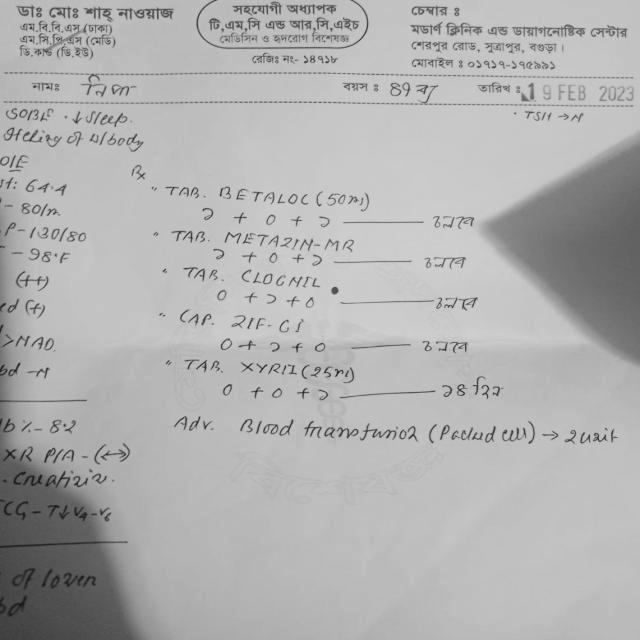 ডাঃ মোঃ শাহ্ নাওয়াজ
এম.বি.বি.এস (ঢাকা)
এম.সি.পি.এস (মেডি)
ডি.কার্ড (ডি.ইউ)
সহযোগী অধ্যাপক
টি,এম,সি এন্ড আর,সি,এইচ
মেডিসিন ও হৃদরোগ বিশেষজ্ঞ
রেজিঃ নং- ১৪৭১৮
চেম্বার ঃ
মডার্ণ ক্লিনিক এন্ড ডায়াগনোষ্টিক সেন্টার
শেরপুর রোড, সুত্রাপুর, বগুড়া।
মোবাইল ঃ ০১৭১৭-১৭৫৯৯১
নামঃ নিপা বয়স ঃ 89 তারিখ ঃ 19 FEB 2023
SOBE ↓ Sleep.
TSH → N
of body
O/E
64.4
- 80/m
P-130/80
- 98°F
(++)
ed (+)
>NAD.
bd -N
b%- 8.2
XR P/A - (↔)
. Creatinin.
ECG - T↓ V4-V6
of lower
bd
Rx
" TAB. BETALOC (50mg)
১ + ০ + ১ — চলবে
" TAB. METAZIN-MR
১ + ০ + ১ — চলবে
" TAB. CLOGNIL
০ + ১ + ০ — চলবে
" CAP. ZIF-CI
০ + ১ + ০ — চলবে
" TAB. XYRIL (25mg)
০ + ০ + ১ — ১৪ দিন
Adv. Blood transfusion (Packed cell) → 2 unit